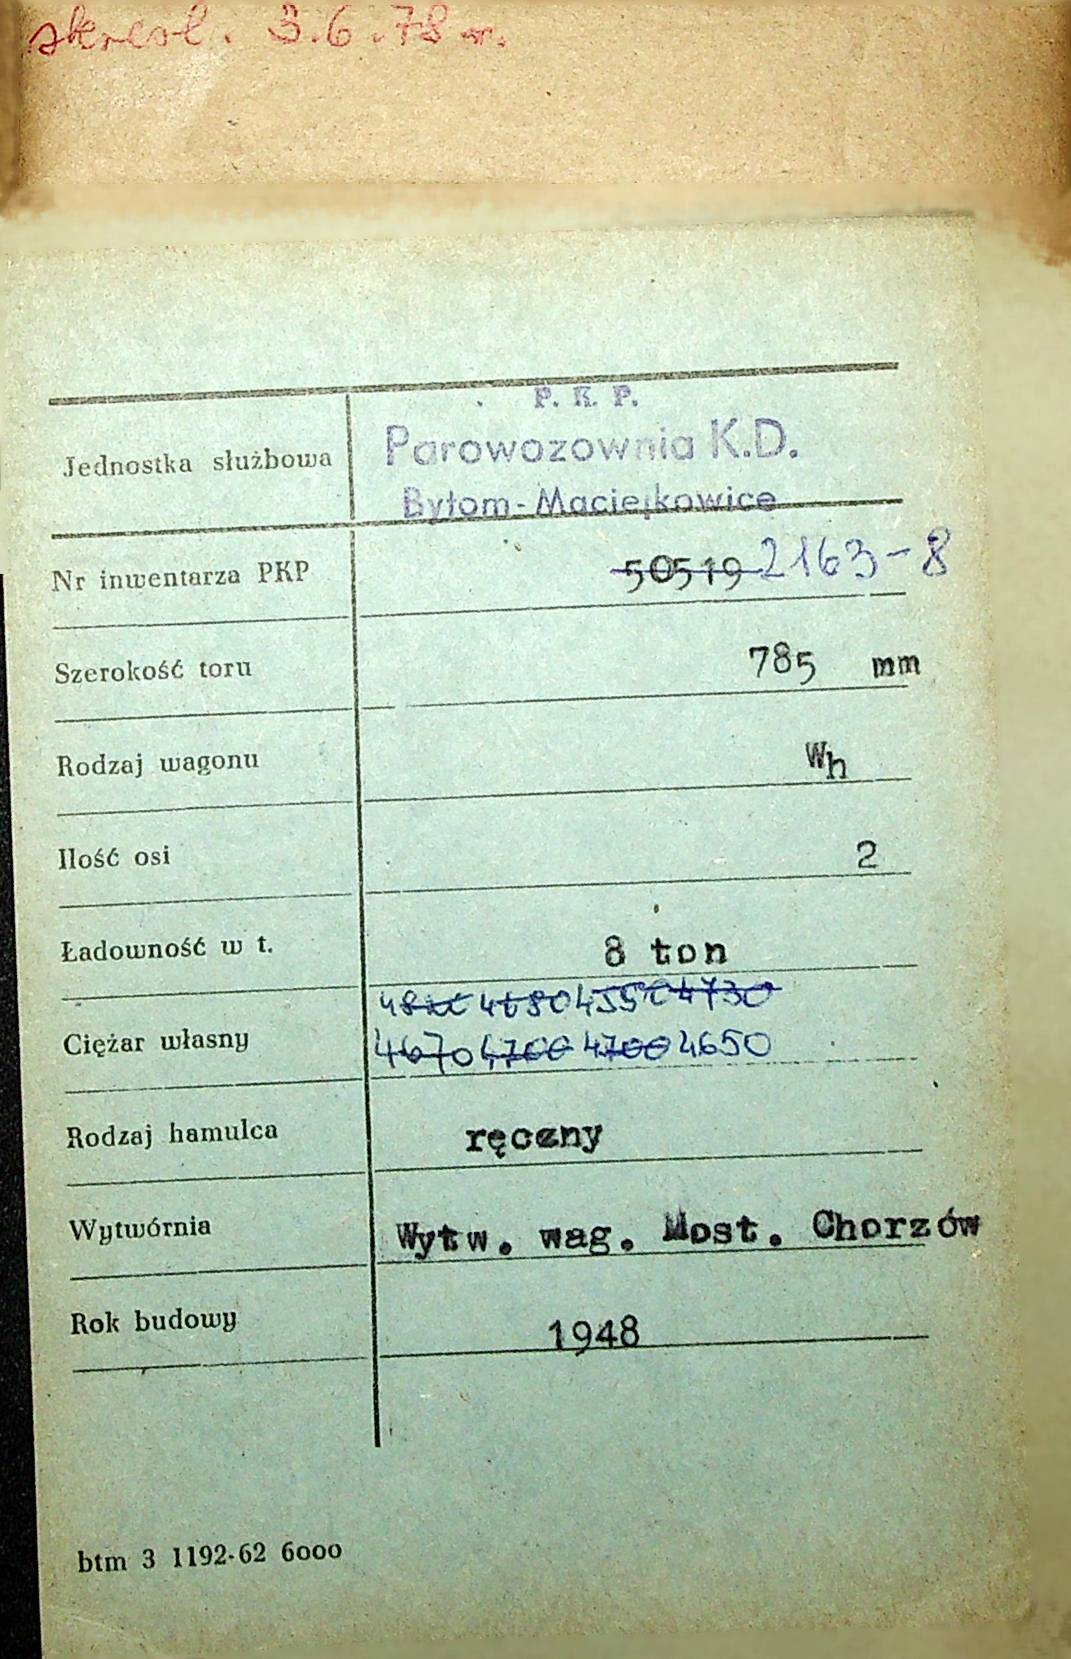 skreśl. 3.6.78 r.
P. K. P.
Jednostka służbowa Parowozownia K.D.
Bytom-Maciejkowice
Nr inwentarza PKP 50519 2163-8
Szerokość toru 785 mm
Rodzaj wagonu Wh
Ilość osi 2
Ładowność w t. 8 ton
4550 4730
Ciężar własny 4670 4700 4700 4650
Rodzaj hamulca ręczny
Wytwórnia Wytw. wag. Most. Chorzów
Rok budowy 1948
btm 3 1192-62 6000